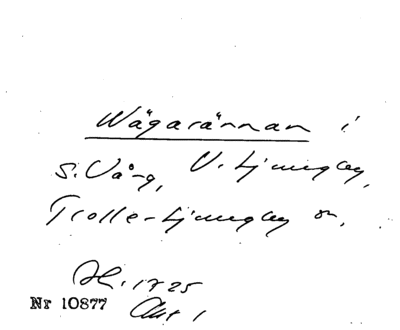 Wägarännan i
S. Vång, V. Ljungby,
Trolle-Ljungby sn.
1725
Nr 10877
Akt 1